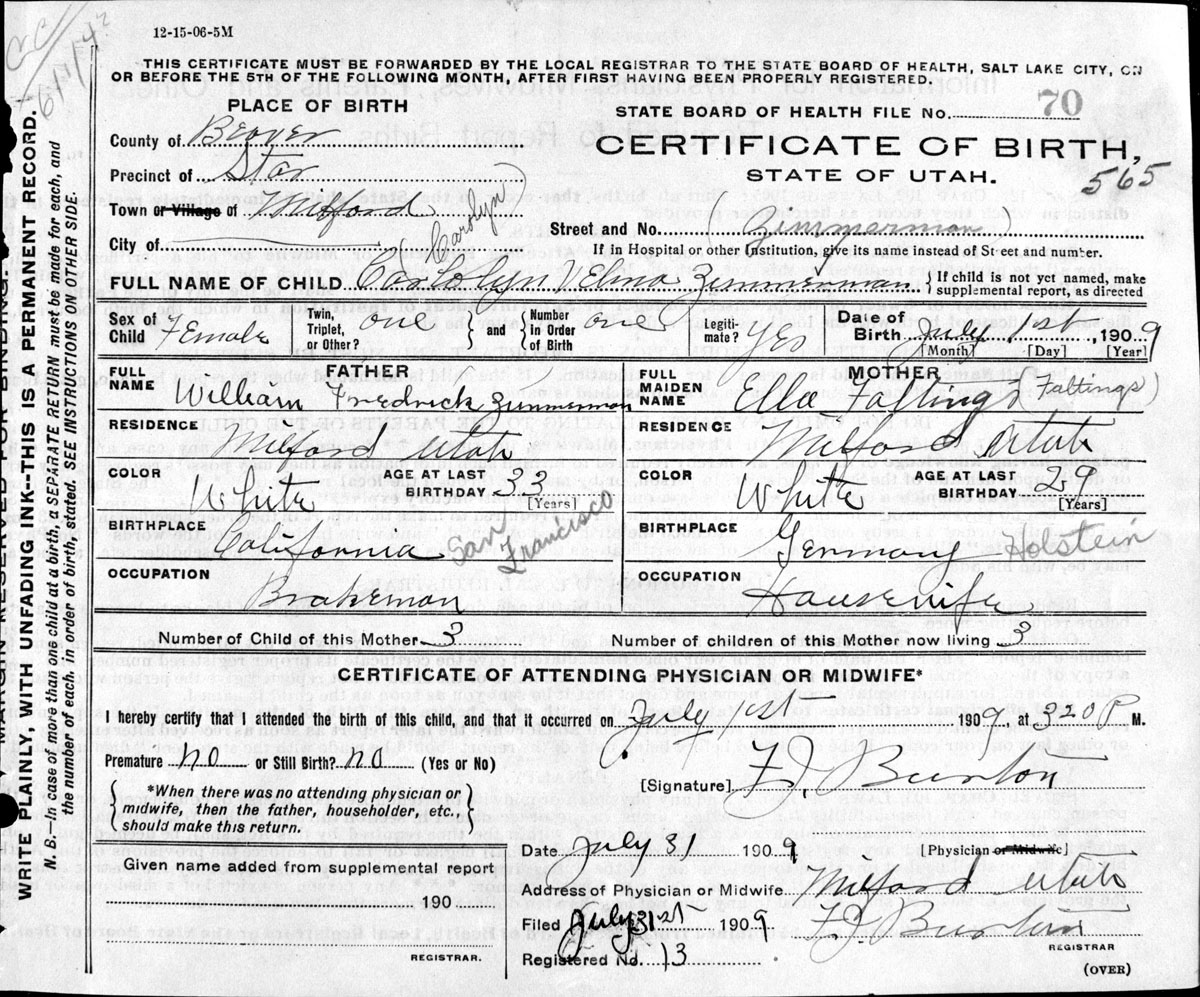 12-15-06-5M
6/11/42
THIS CERTIFICATE MUST BE FORWARDED BY THE LOCAL REGISTRAR TO THE STATE BOARD OF HEALTH, SALT LAKE CITY, ON
OR BEFORE THE 5TH OF THE FOLLOWING MONTH, AFTER FIRST HAVING BEEN PROPERLY REGISTERED.
WRITE PLAINLY, WITH UNFADING INK—THIS IS A PERMANENT RECORD.
N. B.—In case of more than one child at a birth, a SEPARATE RETURN must be made for each, and
the number of each, in order of birth, stated. SEE INSTRUCTIONS ON OTHER SIDE.
PLACE OF BIRTH
STATE BOARD OF HEALTH FILE No. 70
County of Beaver
CERTIFICATE OF BIRTH,
Precinct of Star
STATE OF UTAH.
565
Town or Village of Milford
Carolyn
Street and No. (Zimmerman)
City of
If in Hospital or other Institution, give its name instead of Street and number.
FULL NAME OF CHILD Carolyn Velma Zimmerman
{ If child is not yet named, make
supplemental report, as directed
Sex of Child Female
Twin, Triplet, or Other? one
} and { Number in Order of Birth one
Legitimate? Yes
Date of Birth July 1st, 1909
[Month] [Day] [Year]
FATHER
FULL NAME William Fredrick Zimmerman
RESIDENCE Milford Utah
COLOR White
AGE AT LAST BIRTHDAY 33 [Years]
BIRTHPLACE California San Francisco
OCCUPATION Brakeman
MOTHER
FULL MAIDEN NAME Ella Faltings (Faltings)
RESIDENCE Milford Utah
COLOR White
AGE AT LAST BIRTHDAY 29 [Years]
BIRTHPLACE Germany Holstein
OCCUPATION Housewife
Number of Child of this Mother 3
Number of children of this Mother now living 3
CERTIFICATE OF ATTENDING PHYSICIAN OR MIDWIFE*
I hereby certify that I attended the birth of this child, and that it occurred on July 1st 1909, at 320 P M.
Premature no or Still Birth? no (Yes or No)
{ *When there was no attending physician or
midwife, then the father, householder, etc.,
should make this return. }
[Signature] F. J. Burton
Date July 31 1909
[Physician or Midwife]
Given name added from supplemental report
190
REGISTRAR.
Address of Physician or Midwife Milford Utah
Filed July 31 1909
F. J. Burton
REGISTRAR
Registered No. 13
(OVER)